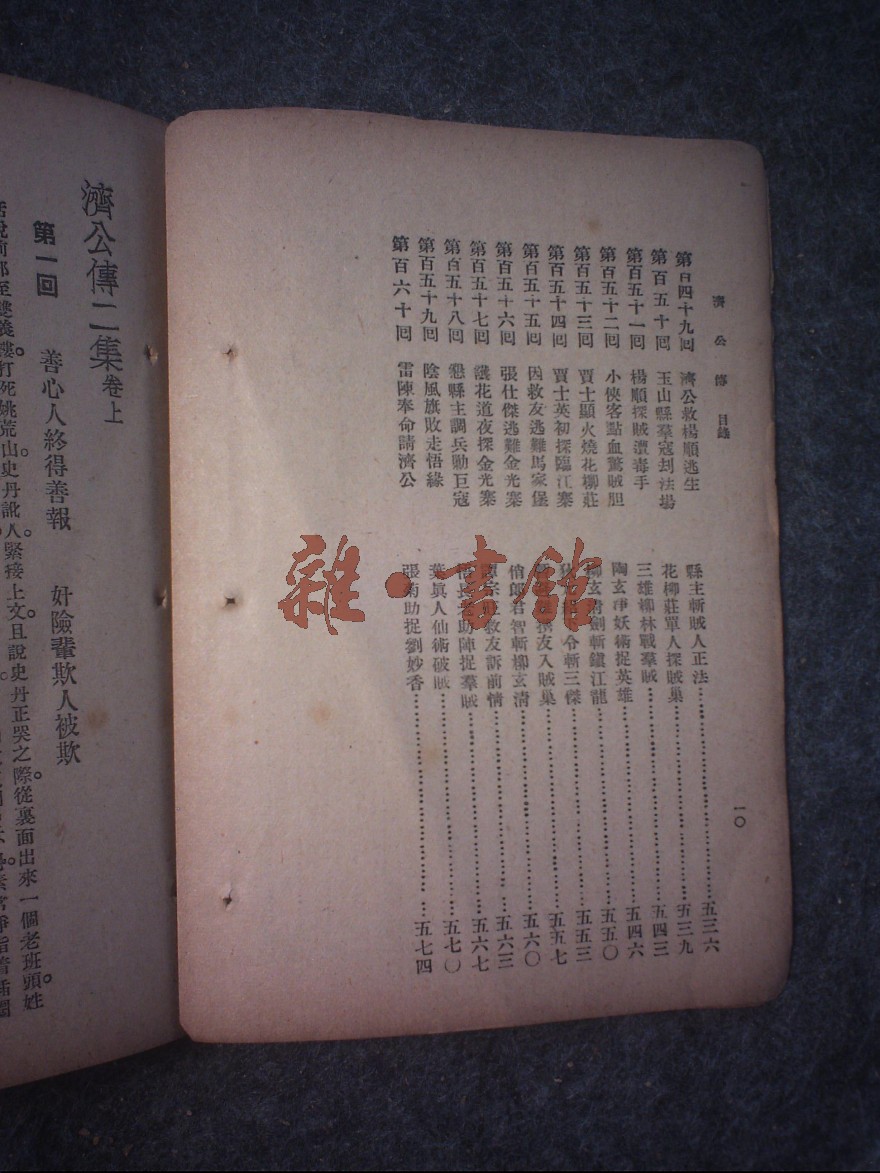 濟公傳 目錄
一〇
第百四十九回 濟公救楊順逃生 縣主斬賊人正法 五三六
第百五十回 玉山縣羣寇刦法場 花柳莊單人探賊巢 五三九
第百五十一回 楊順探賊遭毒手 三雄柳林戰羣賊 五四三
第百五十二回 小俠客點血驚賊胆 陶玄淨妖術捉英雄 五四六
第百五十三回 賈士顯火燒花柳莊 柳玄清劍斬鎭江龍 五五〇
第百五十四回 賈士英初探臨江寨 令斬三傑 五五三
第百五十五回 因救友逃難馬家堡 友入賊巢 五五七
第百五十六回 張仕傑逃難金光寨 俏郎君智斬柳玄清 五六〇
第百五十七回 護花道夜探金光寨 救友訴前情 五六三
第百五十八回 懇縣主調兵勦巨寇 助陣捉羣賊 五六七
第百五十九回 陰風旗敗走悟緣 葉眞人仙術破賊 五七〇
第百六十回 雷陳奉命請濟公 張菊助捉劉妙香 五七四
雜·書館
濟公傳二集 卷上
第一回 善心人終得善報 奸險輩欺人被欺
打死姚荒山。史丹訛人。緊接上文。且說史丹正哭之際。從裏面出來一個老班頭。姓